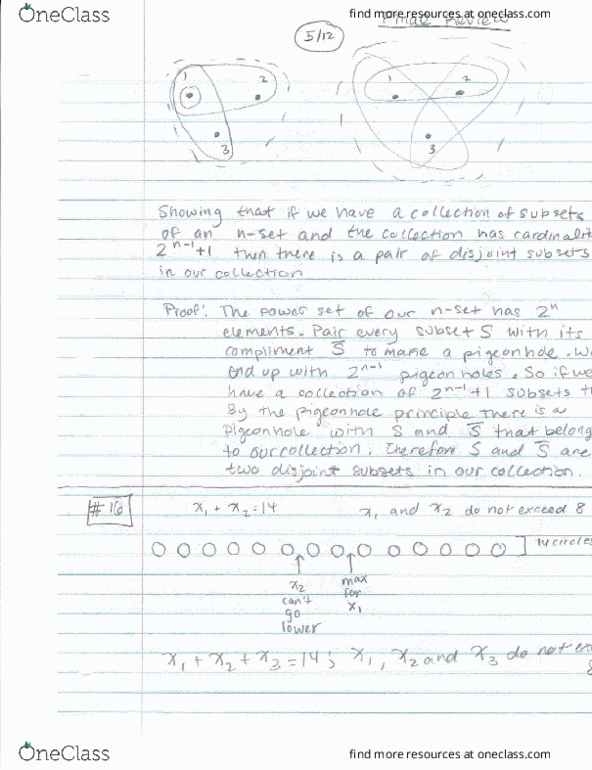 OneClass
find more resources at oneclass.com
Final Review
5/12
1 2 3
1 2 3
Showing that if we have a collection of subsets
of an n-set and the collection has cardinalit
2^{n-1}+1 then there is a pair of disjoint subsets
in our collection
Proof: The power set of our n-set has 2^n
elements. Pair every subset S with its
compliment S̅ to make a pigeonhole. W
end up with 2^{n-1} pigeon holes. So if we
have a collection of 2^{n-1}+1 subsets t
By the pigeonhole principle there is a
pigeonhole with S and S̅ that belong
to our collection. Therefore S and S̅ are
two disjoint subsets in our collection.
#16
x₁ + x₂ = 14 x₁ and x₂ do not exceed 8
14 circles
x₂ can't go lower
max for x₁
x₁ + x₂ + x₃ = 14; x₁, x₂ and x₃ do not ex
8
OneClass
find more resources at oneclass.com